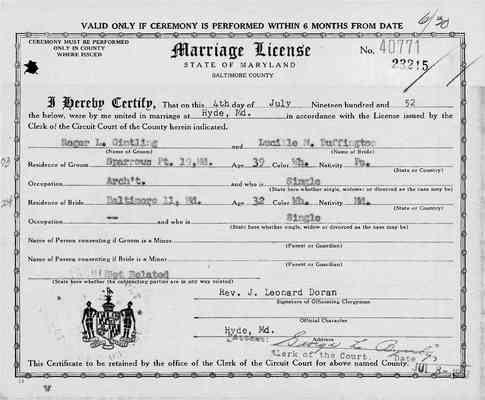 VALID ONLY IF CEREMONY IS PERFORMED WITHIN 6 MONTHS FROM DATE 6/30
CEREMONY MUST BE PERFORMED
ONLY IN COUNTY
WHERE ISSUED
Marriage License
STATE OF MARYLAND
BALTIMORE COUNTY
No. 40771
23215
I Hereby Certify, That on this 4th day of July Nineteen hundred and 52
the below, were by me united in marriage at Hyde, Md. in accordance with the License issued by the
Clerk of the Circuit Court of the County herein indicated.
Roger L. Gintling and Lucille M. Buffington
(Name of Groom) (Name of Bride)
Residence of Groom Sparrows Pt. 19, Md. Age 39 Color Wh. Nativity Pa.
(State or Country)
Occupation Arch't. and who is Single
(State here whether single, widower or divorced as the case may be)
Residence of Bride Baltimore 11, Md. Age 32 Color Wh. Nativity Md.
(State or Country)
Occupation — and who is Single
(State here whether single, widow or divorced as the case may be)
Name of Person consenting if Groom is a Minor
(Parent or Guardian)
Name of Person consenting if Bride is a Minor
(Parent or Guardian)
Not Related
(State here whether the contracting parties are in any way related)
Rev. J. Leonard Doran
Signature of Officiating Clergyman
Official Character
Hyde, Md.
Address
Clerk of the Court. Date
This Certificate to be retained by the office of the Clerk of the Circuit Court for above named County.
JUL